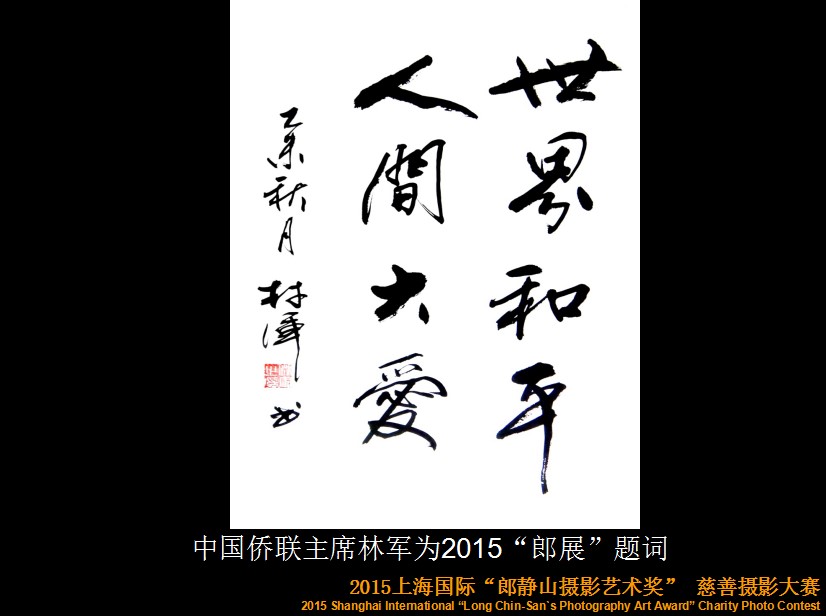 世界和平
人間大愛
乙未秋月
林軍
书
中国侨联主席林军为2015“郎展”题词
2015上海国际“郎静山摄影艺术奖” 慈善摄影大赛
2015 Shanghai International “Long Chin-San`s Photography Art Award” Charity Photo Contest